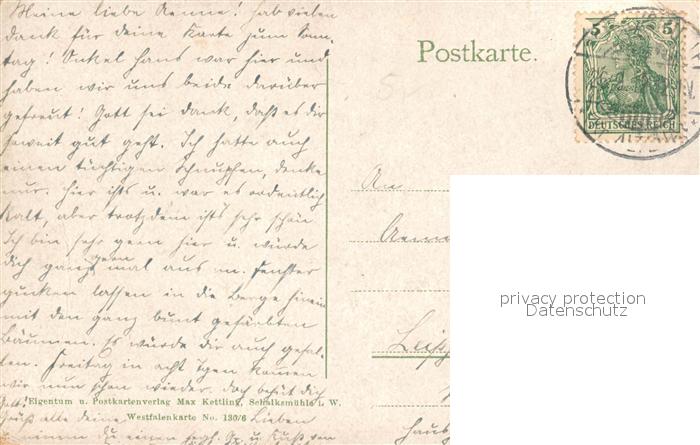 Meine liebe Aenne! hab vielen
dank für deine Karte zum Sonn-
tag! Onkel Hans war hier und
haben wir uns beide darüber
gefreut! Gott sei dank, daß es dir
soweit gut geht. Ich hatte auch
einen tüchtigen Schnupfen, denke
nur. hier ists u. war es ordentlich
kalt, aber trotzdem ists sehr schön
Ich bin sehr gern hier u. würde
dich gern
ganz mal aus m. Fenster
gucken lassen in die Berge hinein
mit den ganz bunt gefärbten
Bäumen. Es würde dir auch gefal-
len. Freitag in acht Tgen kommen
wir nun schon wieder. doch behüt dich
Gott!
Grüß alle deine Lieben
Eigentum u. Postkartenverlag Max Kettling, Schalksmühle i. W.
Westfalenkarte No. 130/6
Postkarte.
5 5
DEUTSCHES REICH
An
Aenn
Leipz
Haus
privacy protection
Datenschutz